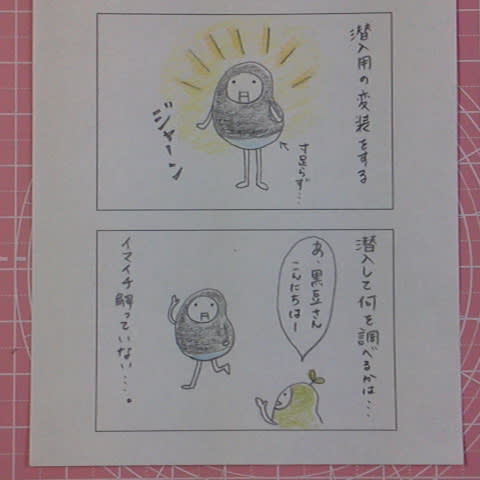 潜入用の変装をする
ジャーン
寸足らず…
潜入して何を調べるかは…
あ、黒豆さん
こんにちはー
イマイチ解っていない…。